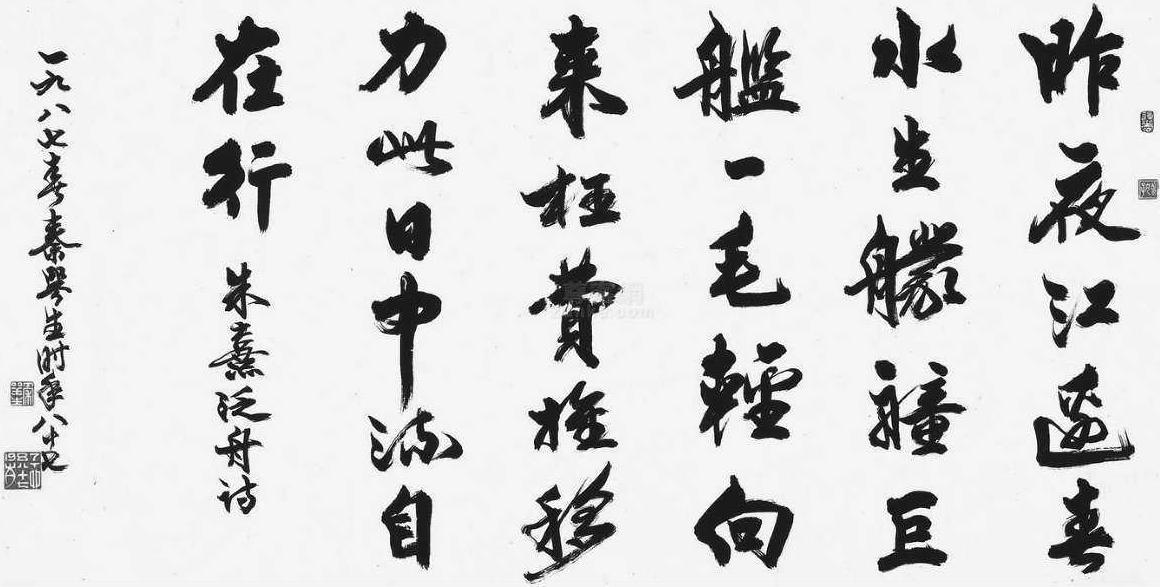 昨夜江邊春
水生艨艟巨
艦一毛輕向
來枉費推移
力此日中流自
在行
朱熹泛舟诗
一九八七春秦咢生时年八十七